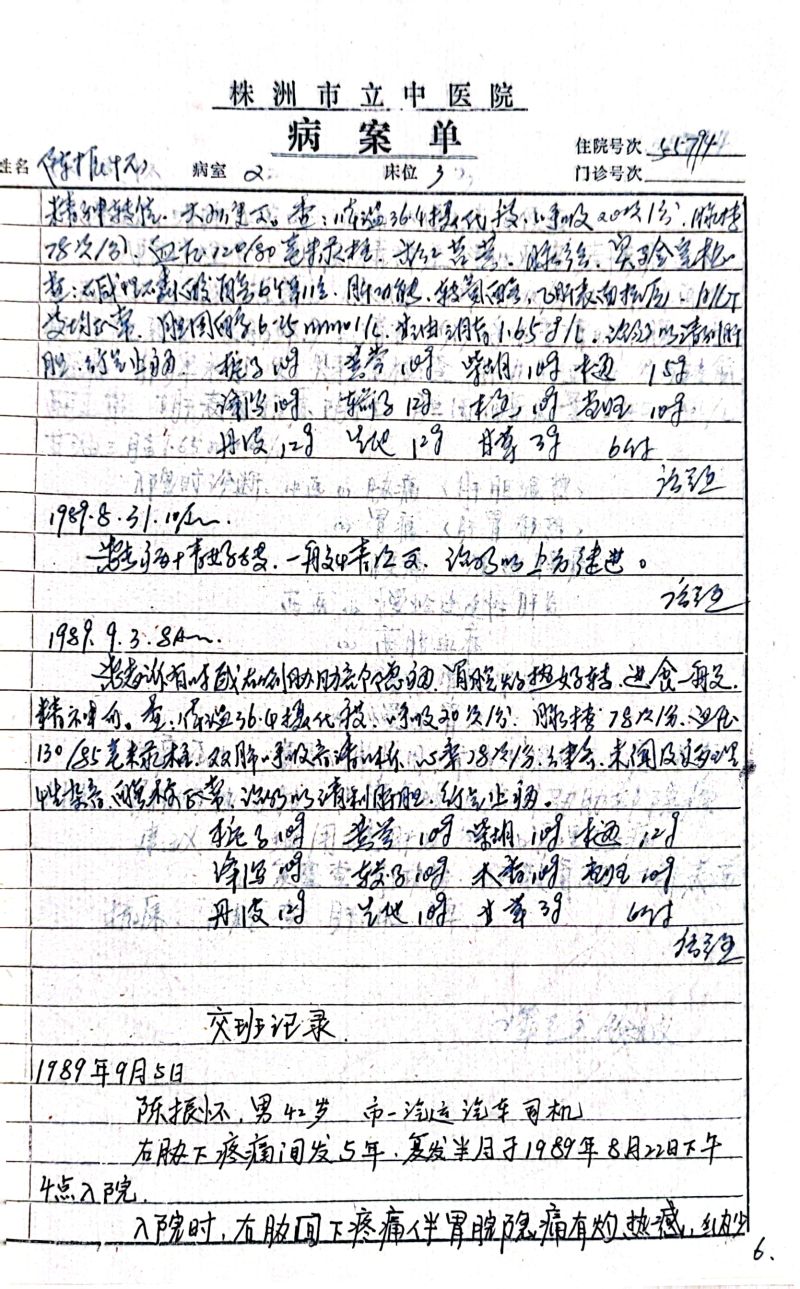 株洲市立中医院
病案单
姓名 陈振怀 病室 2 床位 3 住院号次 55794
门诊号次
精神转佳，大小便可。查：体温36.4摄氏度，呼吸20次/分，脉搏
78次/分，血压120/80毫米汞柱，
常，胆固醇6.25mmol/L，甘油三脂1.65g/L，治疗以清利肝
胆，行气止痛 栀子10g 黄芩10g 柴胡10g 木通15g
泽泻10g 车前子12g 10g 当归10g
丹皮12g 生地12g 甘草3g 6付
1989.8.31.10Am.
患者病情好转，一般情况可，治疗以上方续进。
1989.9.3.8Am.
患者诉有时感右侧胁肋部隐痛，胃脘灼热好转，进食一般，
精神可。查：体温36.4摄氏度，呼吸20次/分，脉搏78次/分，血压
130/85毫米汞柱，双肺呼吸音清晰，心率78次/分，律齐，未闻及病理
性杂音，正常，治疗以清利肝胆，行气止痛。
栀子10g 黄芩10g 柴胡10g 木通12g
泽泻10g 车前子10g 木香10g 当归10g
丹皮12g 生地10g 甘草3g 6付
交班记录
1989年9月5日
陈振怀，男42岁 市一汽运汽车司机
右胁下疼痛间发5年，复发半月于1989年8月22日下午
4点入院。
入院时，右胁间下疼痛伴胃脘隐痛有灼热感，纳少
6.